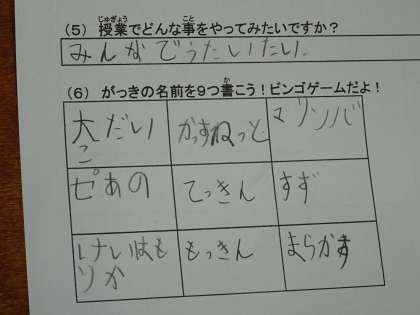 じゅぎょう こと
(5) 授業でどんな事をやってみたいですか?
みんなでうたいたい.
か
(6) がっきの名前を9つ書こう!ビンゴゲームだよ!
大だい
こ
かっすねっと
マリンバ
ピあの
てっきん
すず
もっきん
まらかす